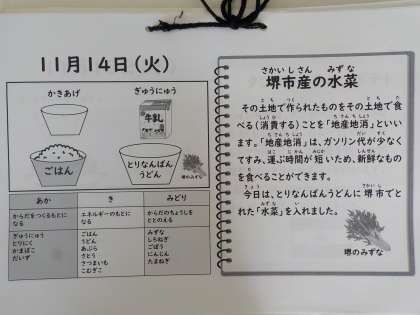 11月14日(火)
かきあげ
ぎゅうにゅう
牛乳
ごはん
とりなんばん
うどん
堺のみずな
あか
き
みどり
からだをつくるもとに
なる
エネルギーのもとに
なる
からだのちょうしを
ととのえる
ぎゅうにゅう
とりにく
かまぼこ
だいず
ごはん
うどん
あぶら
さとう
さつまいも
こむぎこ
みずな
しろねぎ
ごぼう
にんじん
たまねぎ
さかいしさん みずな
堺市産の水菜
その土地で作られたものをその土地で食
べる(消費する)ことを「地産地消」といい
ます。「地産地消」は、ガソリン代が少なく
てすみ、運ぶ時間が短いため、新鮮なもの
を食べることができます。
今日は、とりなんばんうどんに堺市でと
れた“水菜”を入れました。
堺のみずな